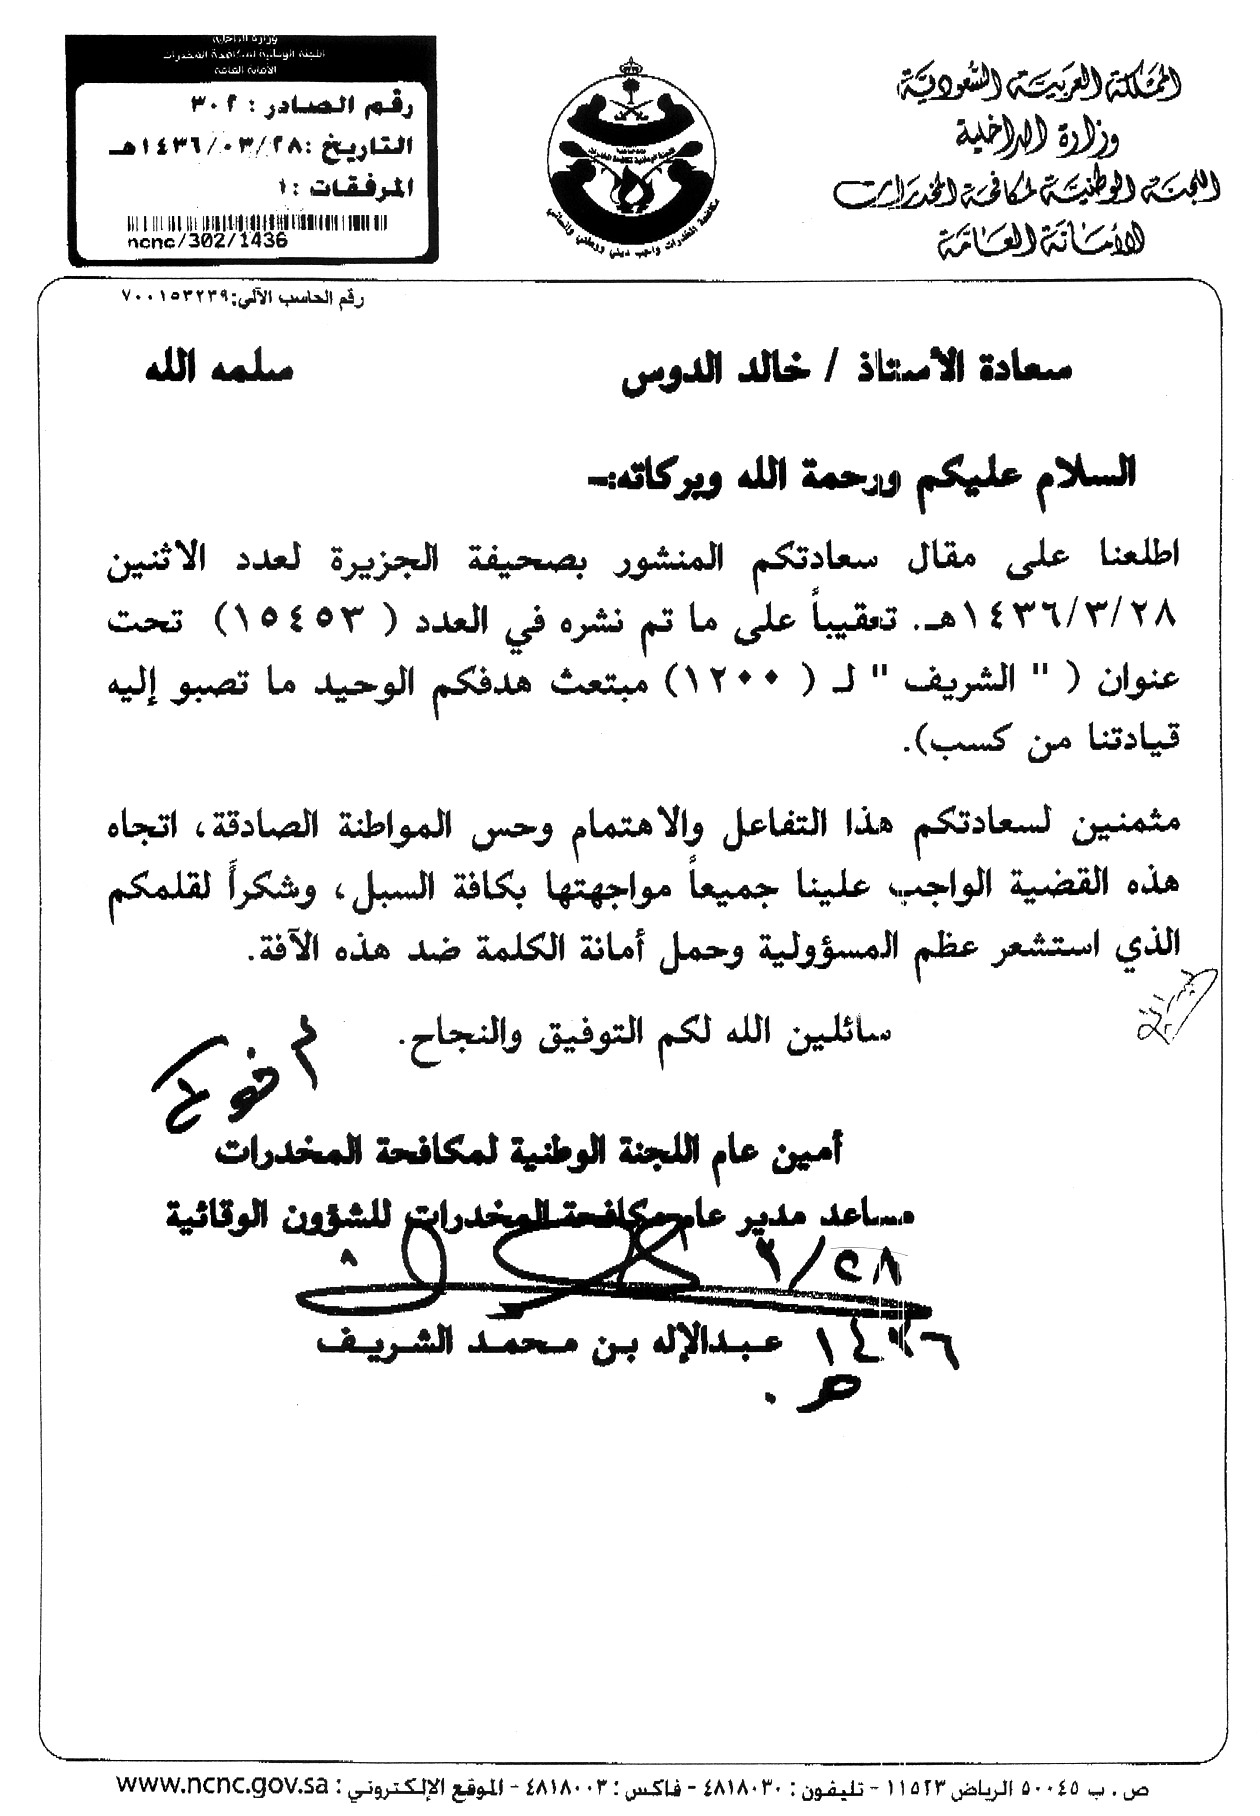 المملكة العربية السعودية
وزارة الداخلية
اللجنة الوطنية لمكافحة المخدرات
الأمانة العامة
مكافحة المخدرات واجب ديني ووطني وإنساني
وزارة الداخلية
اللجنة الوطنية لمكافحة المخدرات
الأمانة العامة
رقم الصادر : ٣٠٢
التاريخ :١٤٣٦/٠٣/٢٨هـ
المرفقات :١
ncnc/302/1436
رقم الحاسب الآلي:٧٠٠١٥٣٢٣٩
سعادة الأستاذ / خالد الدوس سلمه الله
السلام عليكم ورحمة الله وبركاته:-
اطلعنا على مقال سعادتكم المنشور بصحيفة الجزيرة لعدد الاثنين
١٤٣٦/٣/٢٨هـ. تعقيباً على ما تم نشره في العدد ( ١٥٤٥٣) تحت
عنوان ( " الشريف " لـ ( ١٢٠٠) مبتعث هدفكم الوحيد ما تصبو إليه
قيادتنا من كسب).
مثمنين لسعادتكم هذا التفاعل والاهتمام وحس المواطنة الصادقة، اتجاه
هذه القضية الواجب علينا جميعاً مواجهتها بكافة السبل، وشكراً لقلمكم
الذي استشعر عظم المسؤولية وحمل أمانة الكلمة ضد هذه الآفة.
سائلين الله لكم التوفيق والنجاح.
أمين عام اللجنة الوطنية لمكافحة المخدرات
مساعد مدير عام مكافحة المخدرات للشؤون الوقائية
٣/٢٨
١٤٣٦
هـ.
عبدالإله بن محمد الشريف
ص . ب ٥٠٠٤٥ الرياض ١١٥٢٣ - تليفون : ٤٨١٨٠٣٠ - فاكس : ٤٨١٨٠٠٣ - الموقع الإلكتروني : www.ncnc.gov.sa